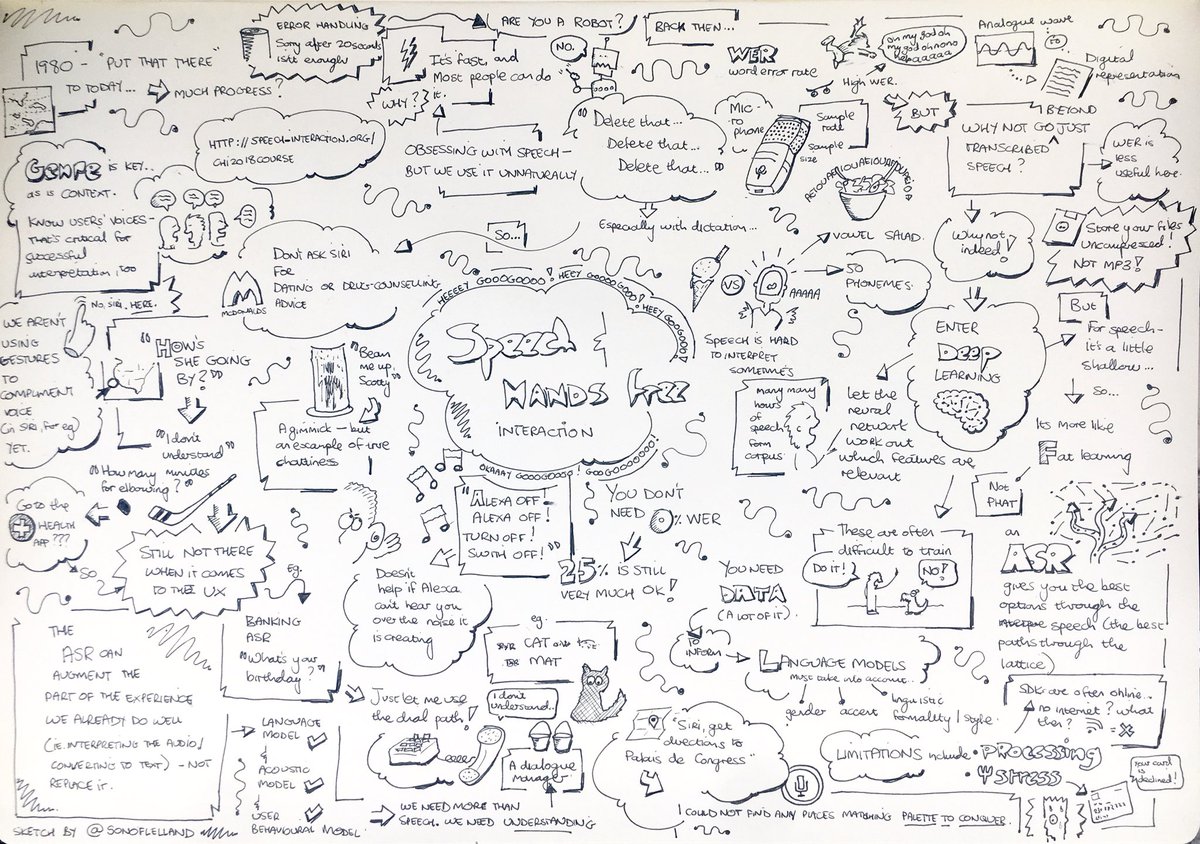 1980 - "PUT THAT THERE"
TO TODAY...
MUCH PROGRESS?
ERROR HANDLING
Sorry after 20 seconds
isn't enough
WHY?
It's fast, and
Most people can do
it.
ARE YOU A ROBOT?
NO.
BACK THEN...
WER
word error rate
oh my god oh
my god oh nono
High WER.
Analogue wave
TO
Digital
representation
HTTP://SPEECH-INTERACTION.ORG/
CHI2018COURSE
OBSESSING WITH SPEECH -
BUT WE USE IT UNNATURALLY
"Delete that...
Delete that...
Delete that..."
Especially with dictation...
MIC -
TO
PHONE
Sample
rate
sample
size
BUT
BEYOND
WHY NOT GO JUST
TRANSCRIBED
SPEECH?
WER is
less
useful here.
Why not
indeed!
Store your files
Uncompressed!
NOT MP3!
GENRE IS KEY..
as is CONTEXT.
KNOW USERS' VOICES -
that's critical for
successful
interpretation, too
So...
DON'T ASK SIRI
FOR
DATING OR DRUG-COUNSELLING
ADVICE
MCDONALDS
VOWEL SALAD.
50
PHONEMES.
VS
AAAAA
SPEECH IS HARD
TO INTERPRET
SOMETIMES
HEEEEY GOOGOOOO! HEEY GOOOOOGO! HEEY GOOGOOO!
Speech &
HANDS free
INTERACTION
OKAAAY GOOOGOOO! GOOGOOOOOOO!
NO, SIRI. HERE.
WE AREN'T
USING
GESTURES
TO
COMPLIMENT
VOICE
(in SIRI, for eg)
YET.
"HOW'S
SHE GOING
BY?"
"I don't
understand"
"How many minutes
for elbowing?"
Go to the
HEALTH
APP???
So
STILL NOT THERE
WHEN IT COMES
TO THE UX
"Beam
me up,
Scotty"
A gimmick - but
an example of
chattiness
many many
hours
of
speech
form
corpus
ENTER
DEEP
LEARNING
Let the
neural
network
work out
which features are
relevant
But
For speech -
it's a little
shallow...
So...
It's more like
Fat learning
Not
PHAT
"ALEXA OFF!
ALEXA OFF!
TURN OFF!
SWITH OFF!"
Doesn't
help if Alexa
can't hear you
over the noise it
is creating
YOU DON'T
NEED 0% WER
25% IS STILL
VERY MUCH OK!
YOU NEED
DATA
(A LOT OF IT).
TO
INFORM
LANGUAGE MODELS
must take into account...
gender
accent
linguistic
formality/style.
These are often
difficult to train
DO IT!
NO!
an
ASR
gives you the best
options through the
speech (the best
paths through the
lattice)
Eg.
BANKING
ASR
"What's your
birthday?"
Just let me use
the dial path!
THE
ASR CAN
AUGMENT THE
PART OF THE EXPERIENCE
WE ALREADY DO WELL
(ie. INTERPRETING THE AUDIO/
CONVERTING TO TEXT) - NOT
REPLACE IT.
LANGUAGE
MODEL
&
ACOUSTIC
MODEL
&
USER
BEHAVIOURAL MODEL
WE NEED MORE THAN
SPEECH. WE NEED UNDERSTANDING
eg.
CAT
MAT
I don't
understand..
A dialogue
manager
"Siri, get
directions to
Palais de Congress"
I COULD NOT FIND ANY PLACES MATCHING PALETTE TO CONQUER.
SDKs are often online...
no internet? what
then?
LIMITATIONS include
• PROCESSING
• STRESS
Your card
is declined!
SKETCH BY @SONOFLELLAND